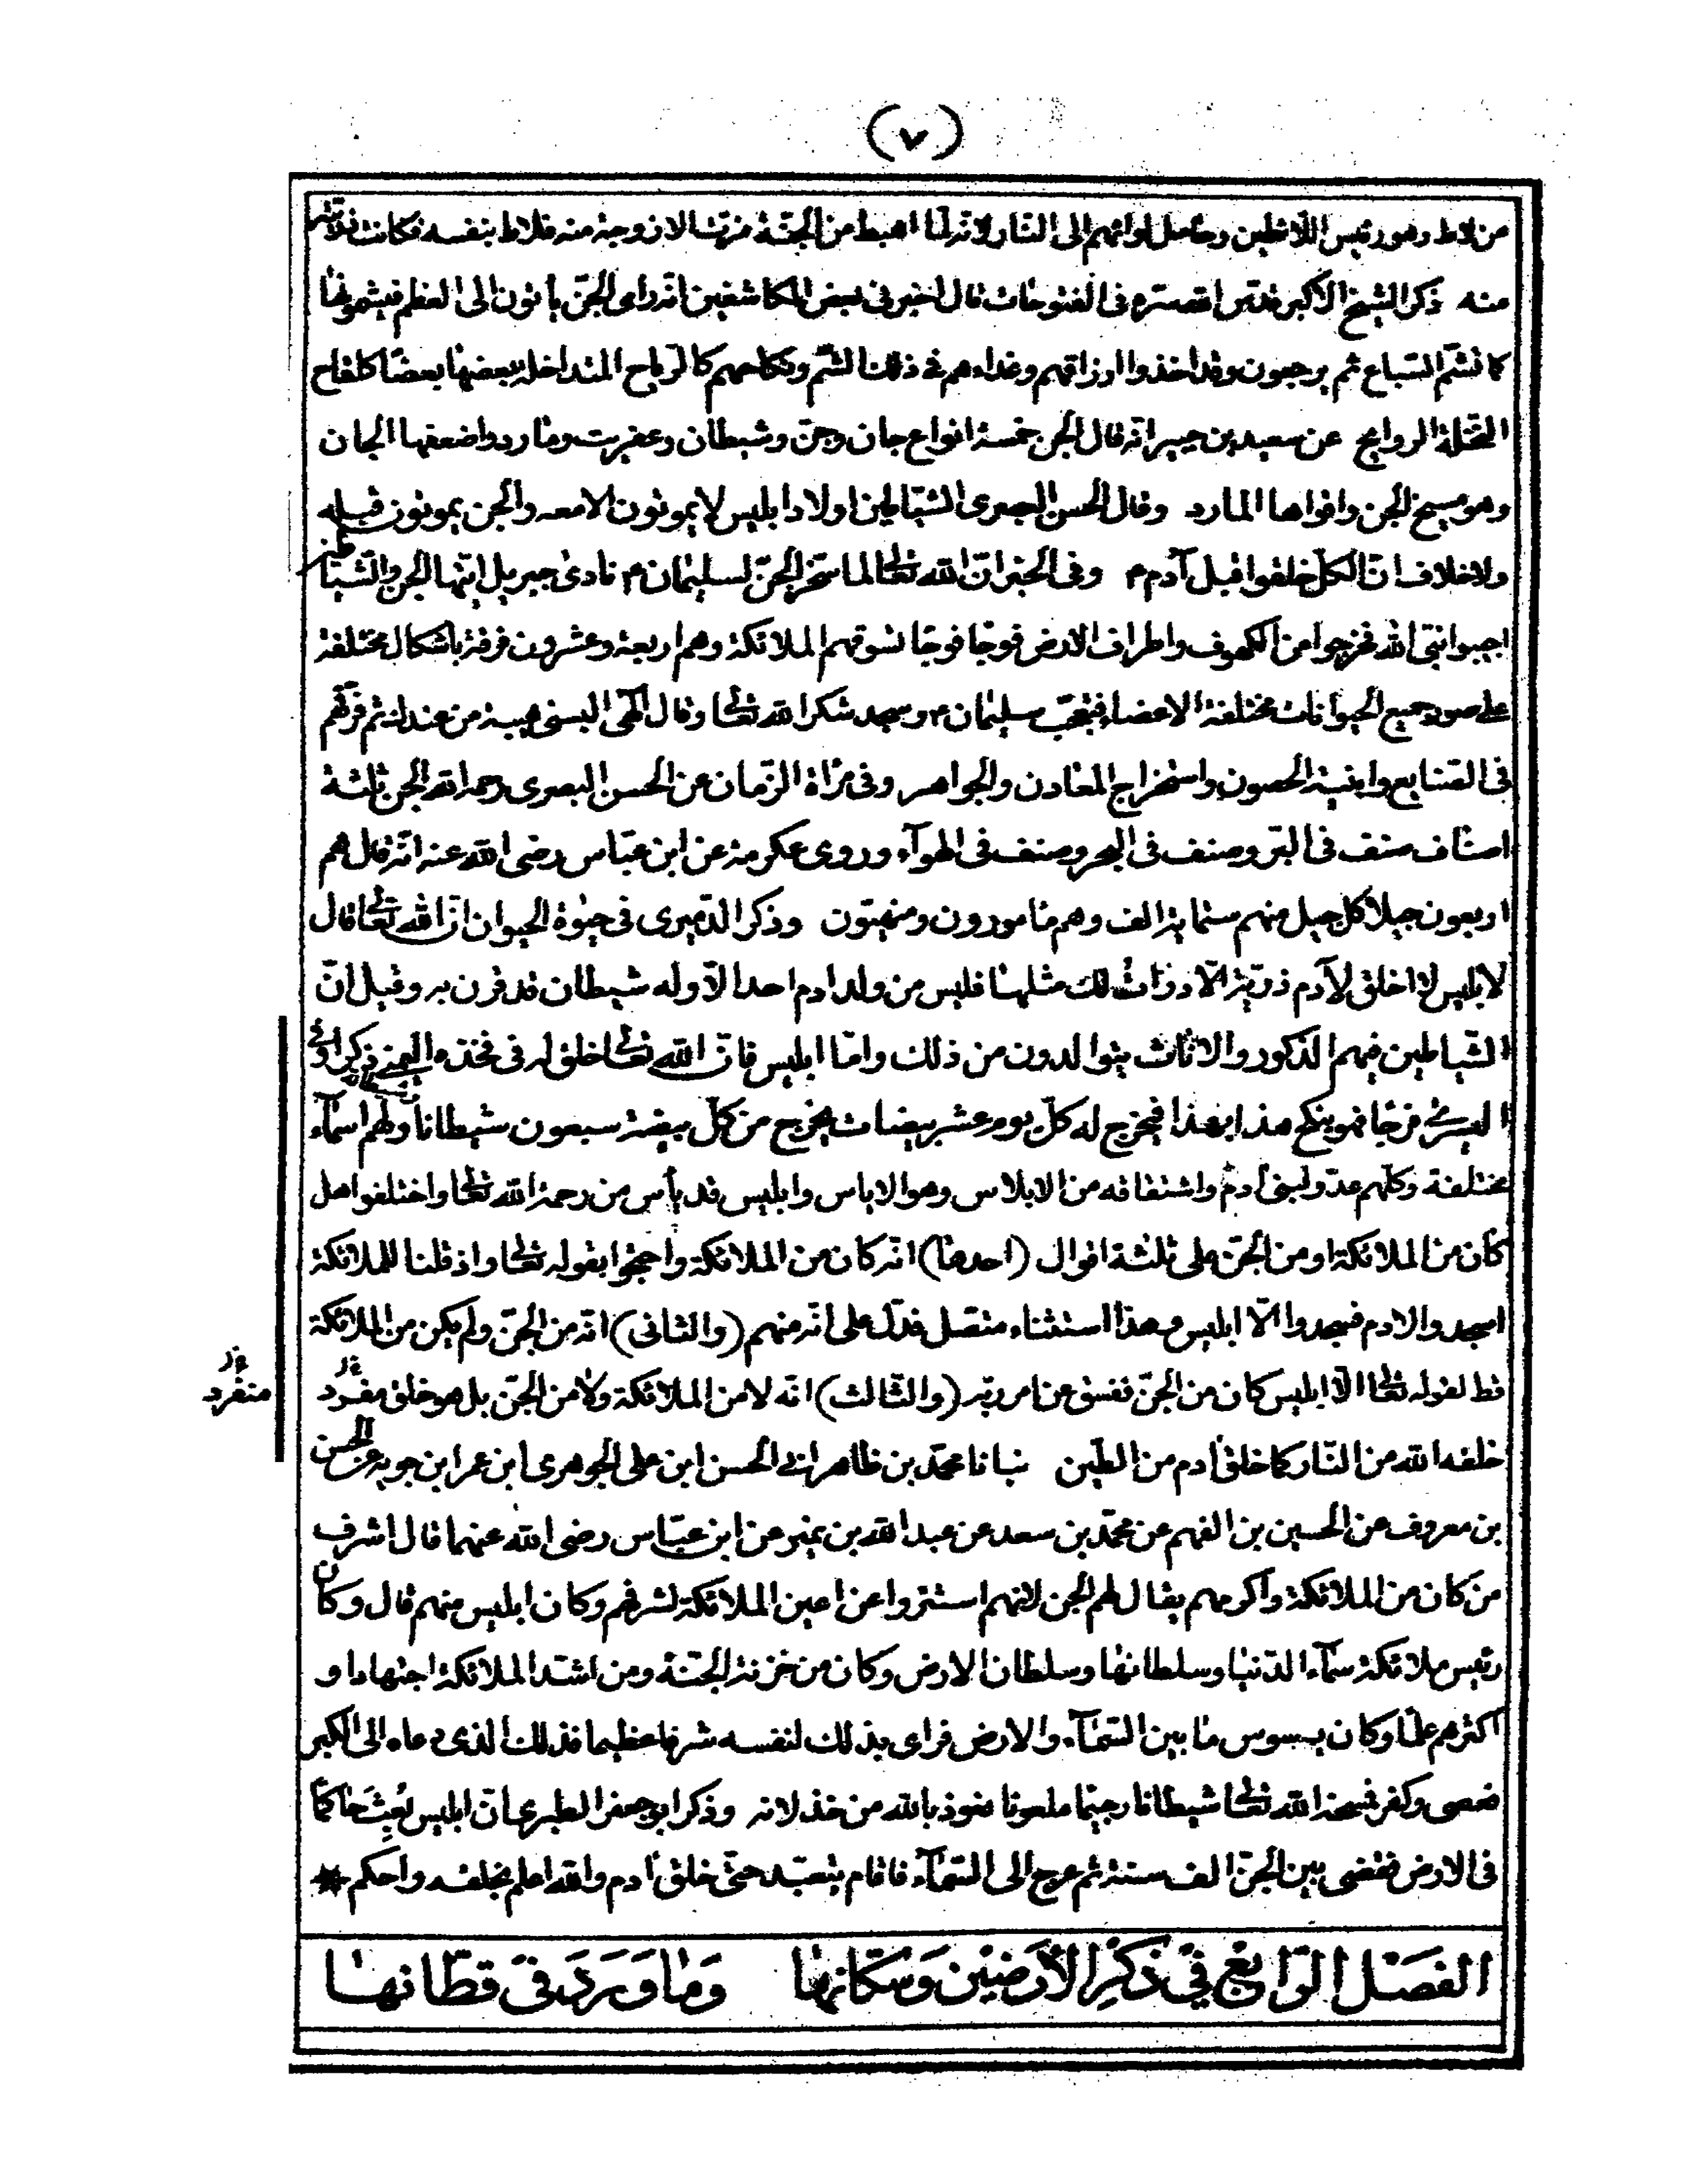 (٧)
من لاط وهو رئيس اللائطين وحامل لوائهم الى النار لانه لما اهبط من الجنة فردا لا زوجة منه فلاط بنفسه فكانت ذريته
منه ذكر الشيخ الاكبر قدس الله سره فى الفتوحات قال اخبرنى بعض المكاشفين انه راى الجن يأتون الى العظم فيشمونها
كما تشم السباع ثم يرجعون وقد اخذوا ارزاقهم وغداءهم فى ذلك الشم ونكاحهم كالرياح المتداخلة بعضها بعضا كلقاح
النخلة الروايح عن سعيد بن جبير انه قال الجن خمسة انواع جان وجن وشيطان وعفريت ومارد واضعفها الجان
وهو مسيخ الجن واقواها المارد وقال الحسن البصرى الشياطين اولاد ابليس لا يموتون الا معه والجن يموتون قبله
ولا خلاف ان الكل خلقوا قبل آدم م وفى الخبر ان الله تعالى لما سخر الجن لسليمان م نادى جبريل ايتها الجن والشياطين
اجيبوا نبى الله فخرجوا من الكهوف واطراف الارض فوجا فوجا تسوقهم الملائكة وهم اربعة وعشرون فرقة باشكال مختلفة
على صور جميع الحيوانات مختلفة الاعضاء فتعجب سليمان م وسجد شكرا لله تعالى وقال الهى البسنى هيبة من عندك ثم فرقهم
فى الصنايع وابنية الحصون واستخراج المعادن والجواهر وفى مرآة الزمان عن الحسن البصرى رحمه الله الجن ثلثة
اصناف صنف فى البر وصنف فى البحر وصنف فى الهوآء وروى عكرمة عن ابن عباس رضى الله عنه انه قال هم
اربعون جيلا كل جيل منهم ستماية الف وهم مامورون ومنهيون وذكر الدميرى فى حيوة الحيوان ان الله تعالى قال
لابليس لا اخلق لآدم ذرية الا ذرأت لك مثلها فليس من ولد ادم احد الا وله شيطان قد قرن به وقيل ان
الشياطين فيهم الذكور والاناث يتوالدون من ذلك واما ابليس فان الله تعالى خلق له فى فخذه اليمنى ذكرا وفى
اليسرى فرجا فهو ينكح هذا بهذا فيخرج له كل يوم عشر بيضات يخرج من كل بيضة سبعون شيطانا ولهم اسمآء
مختلفة وكلهم عدو لبنى ادم واشتقاقه من الابلاس وهو الاياس وابليس قد يأس من رحمة الله تعالى واختلفوا هل
كان من الملائكة او من الجن على ثلثة اقوال (احدها) انه كان من الملائكة واحتجوا بقوله تعالى واذ قلنا للملائكة
اسجدوا لادم فسجدوا الا ابليس وهذا استثناء متصل فدل على انه منهم (والثانى) انه من الجن ولم يكن من الملائكة
قط لقوله تعالى الا ابليس كان من الجن ففسق عن امر ربه (والثالث) انه لا من الملائكة ولا من الجن بل هو خلق مفرد
منفرد
خلقه الله من النار كما خلق ادم من الطين نبانا محمد بن طاهر انى الحسن ابن على الجوهرى ابن عمر ابن حويه عن الحسن
بن معروف عن الحسين بن الفهم عن محمد بن سعد عن عبد الله بن نمير عن ابن عباس رضى الله عنهما قال اشرف
من كان من الملائكة واكرمهم يقال لهم الجن لانهم استتروا عن اعين الملائكة لشرفهم وكان ابليس منهم قال وكان
رئيس ملائكة سمآء الدنيا وسلطانها وسلطان الارض وكان من خزنة الجنة ومن اشد الملائكة اجتهادا و
اكثرهم علما وكان يسوس ما بين السمآء والارض فراى بذلك لنفسه شرفا عظيما فذلك الذى دعاه الى الكبر
فعصى وكفر فمسخه الله تعالى شيطانا رجيما ملعونا نعوذ بالله من خذلانه وذكر ابو جعفر الطبرى ان ابليس بُعِثَ حاكما
فى الارض فقضى بين الجن الف سنة ثم عرج الى السمآء فاقام يتعبد حتى خلق ادم والله اعلم بخلقه واحكم
الفصل الرابع فى ذكر الأرضين وسكانها وما ورد فى قطانها